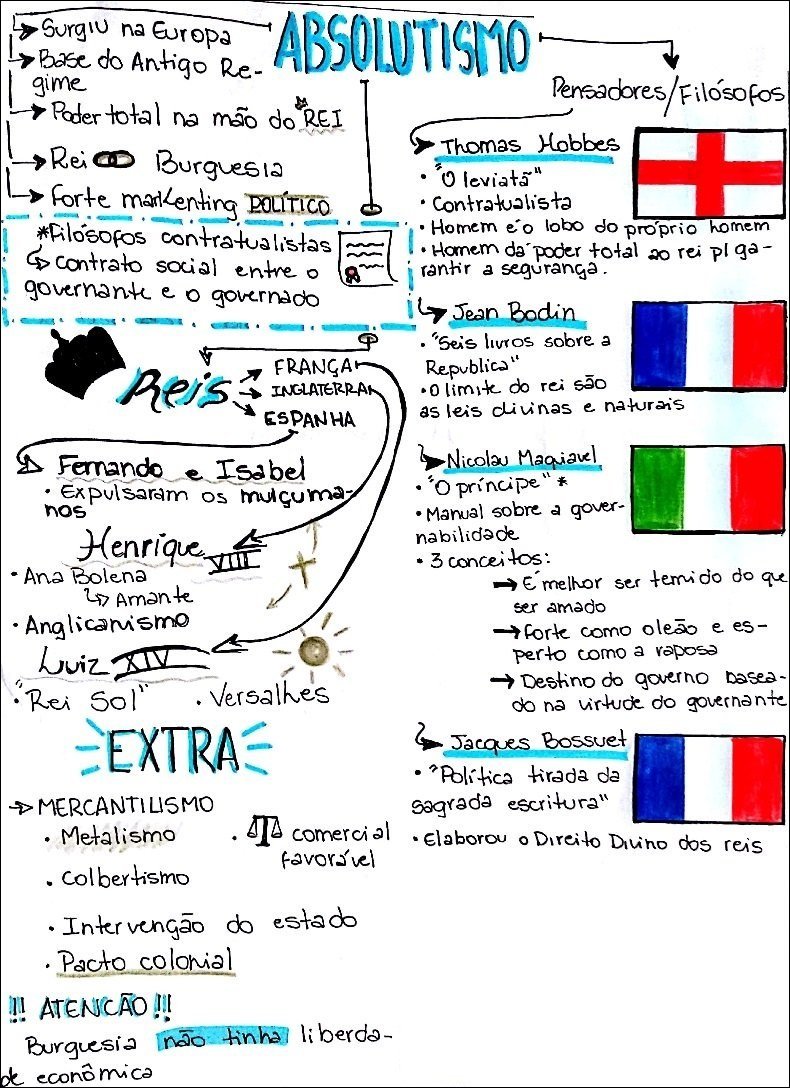 ABSOLUTISMO
Surgiu na Europa
Base do Antigo Re-
gime
Poder total na mão do REI
Rei Burguesia
Forte markenting POLÍTICO
*Filósofos contratualistas
contrato social entre o
governante e o governado
Reis
FRANÇA
INGLATERRA
ESPANHA
Fernando e Isabel
• Expulsaram os mulçuma-
nos
Henrique VIII
• Ana Bolena
Amante
• Anglicanismo
Luiz XIV
• "Rei Sol" • Versalhes
EXTRA
MERCANTILISMO
• Metalismo
• comercial
favorável
• Colbertismo
• Intervenção do estado
• Pacto colonial
!! ATENCÃO !!
Burguesia não tinha liberda-
de econômica
Pensadores/Filósofos
Thomas Hobbes
• "O leviatã"
• Contratualista
• Homem é o lobo do próprio homem
• Homem dá poder total ao rei p/ ga-
rantir a segurança.
Jean Bodin
• "Seis livros sobre a
Republica"
• O limite do rei são
as leis divinas e naturais
Nicolau Maquiavel
• "O príncipe" *
• Manual sobre a gover-
nabilidade
• 3 conceitos:
É melhor ser temido do que
ser amado
forte como oleão e es-
perto como a raposa
Destino do governo basea-
do na virtude do governante
Jacques Bossuet
• "Política tirada da
sagrada escritura"
• Elaborou o Direito Divino dos reis